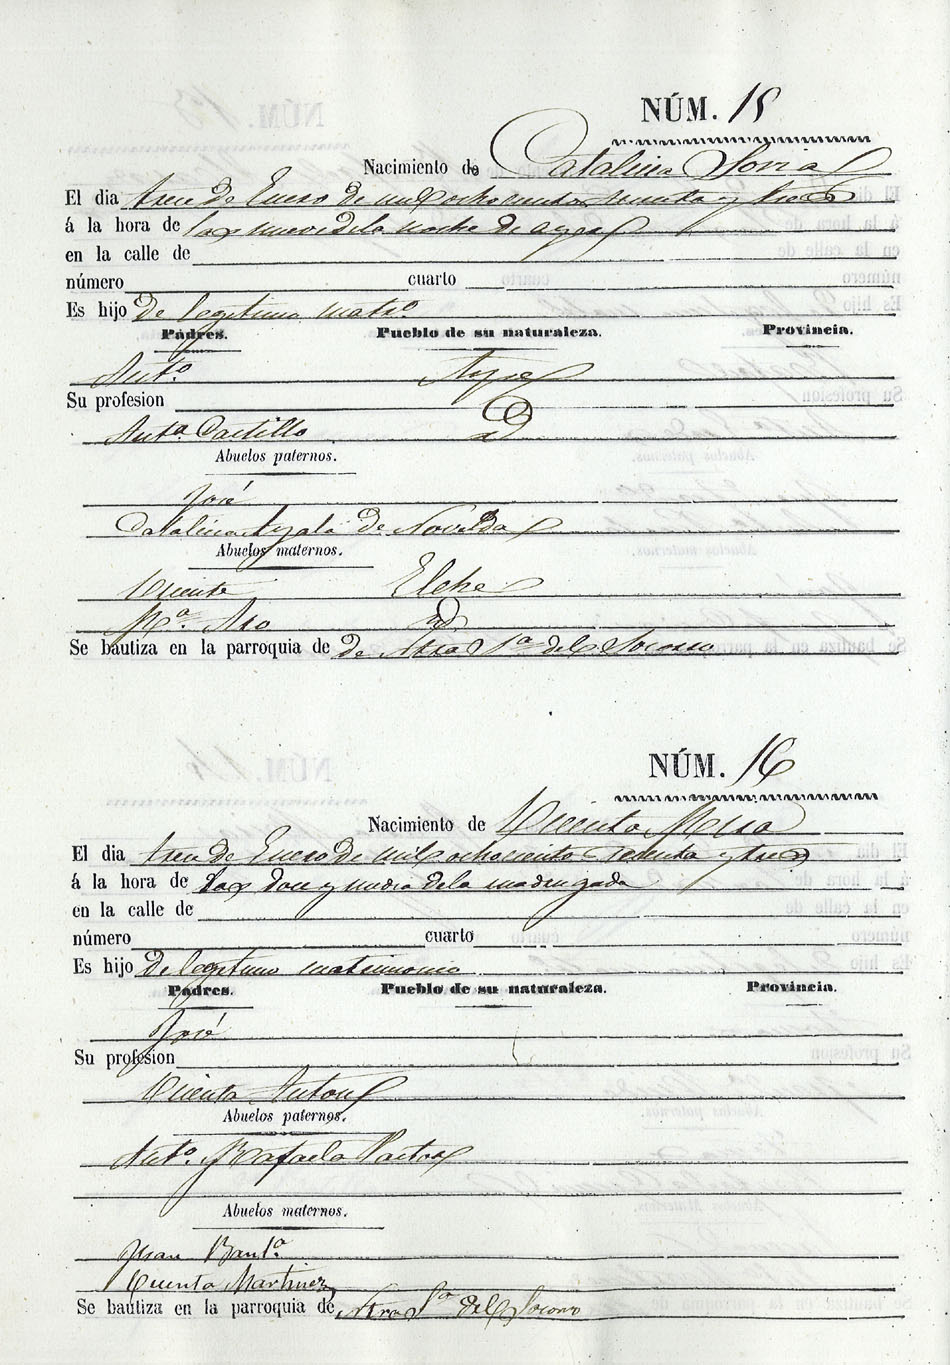 NÚM. 15
Nacimiento de Catalina Soria
El dia trece de Enero de mil ochociento sesenta y tres
á la hora de las nueve de la noche de ayer
en la calle de
número cuarto
Es hijo de legitimo matro
Padres. Pueblo de su naturaleza. Provincia.
Anto. Aspe
Su profesion
Anta. Castillo id
Abuelos paternos.
José
Catalina Ayala de Novelda
Abuelos maternos.
Vicente Elche
Ma. id
Se bautiza en la parroquia de de Ntra Sa del Socorro
NÚM. 16
Nacimiento de Vicenta Mira
El dia trece de Enero de mil ochociento sesenta y tres
á la hora de las doce y media de la madrugada
en la calle de
número cuarto
Es hijo de legitimo matrimonio
Padres. Pueblo de su naturaleza. Provincia.
José
Su profesion
Vicenta Anton
Abuelos paternos.
Anto. y Rafaela Pastor
Abuelos maternos.
Juan Bauta
Vicenta Martinez
Se bautiza en la parroquia de Ntra Sa del Socorro